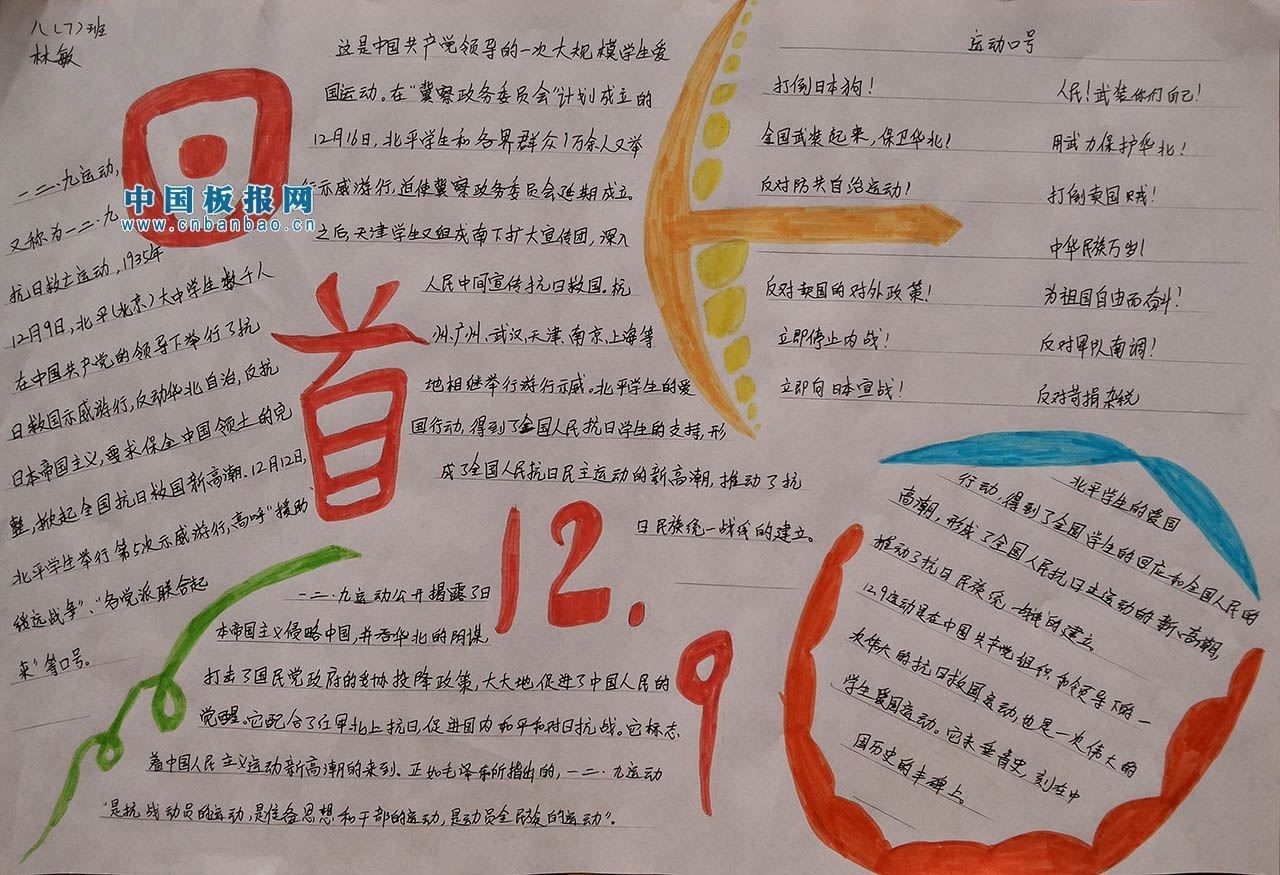 八(7)班
林敏
回首
12.9
中国板报网
www.cnbanbao.cn
一二·九运动,
又称为一二·九
抗日救亡运动,1935年
12月9日,北平(北京)大中学生数千人
在中国共产党的领导下举行了抗
日救国示威游行,反动华北自治,反抗
日本帝国主义,要求保全中国领土的完
整,掀起全国抗日救国新高潮.12月12日,
北平学生举行第5次示威游行,高呼"援助
绥远战争"、"各党派联合起
来"等口号。
这是中国共产党领导的一次大规模学生爱
国运动。在"冀察政务委员会"计划成立的
12月16日,北平学生和各界群众1万余人又举
行示威游行,迫使冀察政务委员会延期成立。
之后,天津学生又组成南下扩大宣传团,深入
人民中间宣传抗日救国。杭
州、广州、武汉、天津、南京、上海等
地相继举行游行示威。北平学生的爱
国行动,得到了全国人民抗日学生的支持,形
成了全国人民抗日民主运动的新高潮,推动了抗
日民族统一战线的建立。
一二·九运动公开揭露了日
本帝国主义侵略中国,并吞华北的阴谋,
打击了国民党政府的妥协投降政策,大大地促进了中国人民的
觉醒。它配合了红军北上抗日,促进国内和平和对日抗战。它标志
着中国人民主义运动新高潮的来到。正如毛泽东所指出的,一二·九运动
"是抗战动员的运动,是准备思想和干部的运动,是动员全民族的运动"。
运动口号
打倒日本狗!
全国武装起来,保卫华北!
反对防共自治运动!
反对卖国的对外政策!
立即停止内战!
立即向日本宣战!
人民!武装你们自己!
用武力保护华北!
打倒卖国贼!
中华民族万岁!
为祖国自由而奋斗!
反对军队南调!
反对苛捐杂税
北平学生的爱国
行动,得到了全国学生的回应和全国人民的
高潮,形成了全国人民抗日主运动的新高潮,
推动了抗日民族统一战线的建立。
12.9运动是在中国共产党组织和领导下的一
次伟大的抗日救国运动,也是一次伟大的
学生爱国运动。它永垂青史,刻在中
国历史的丰碑上。